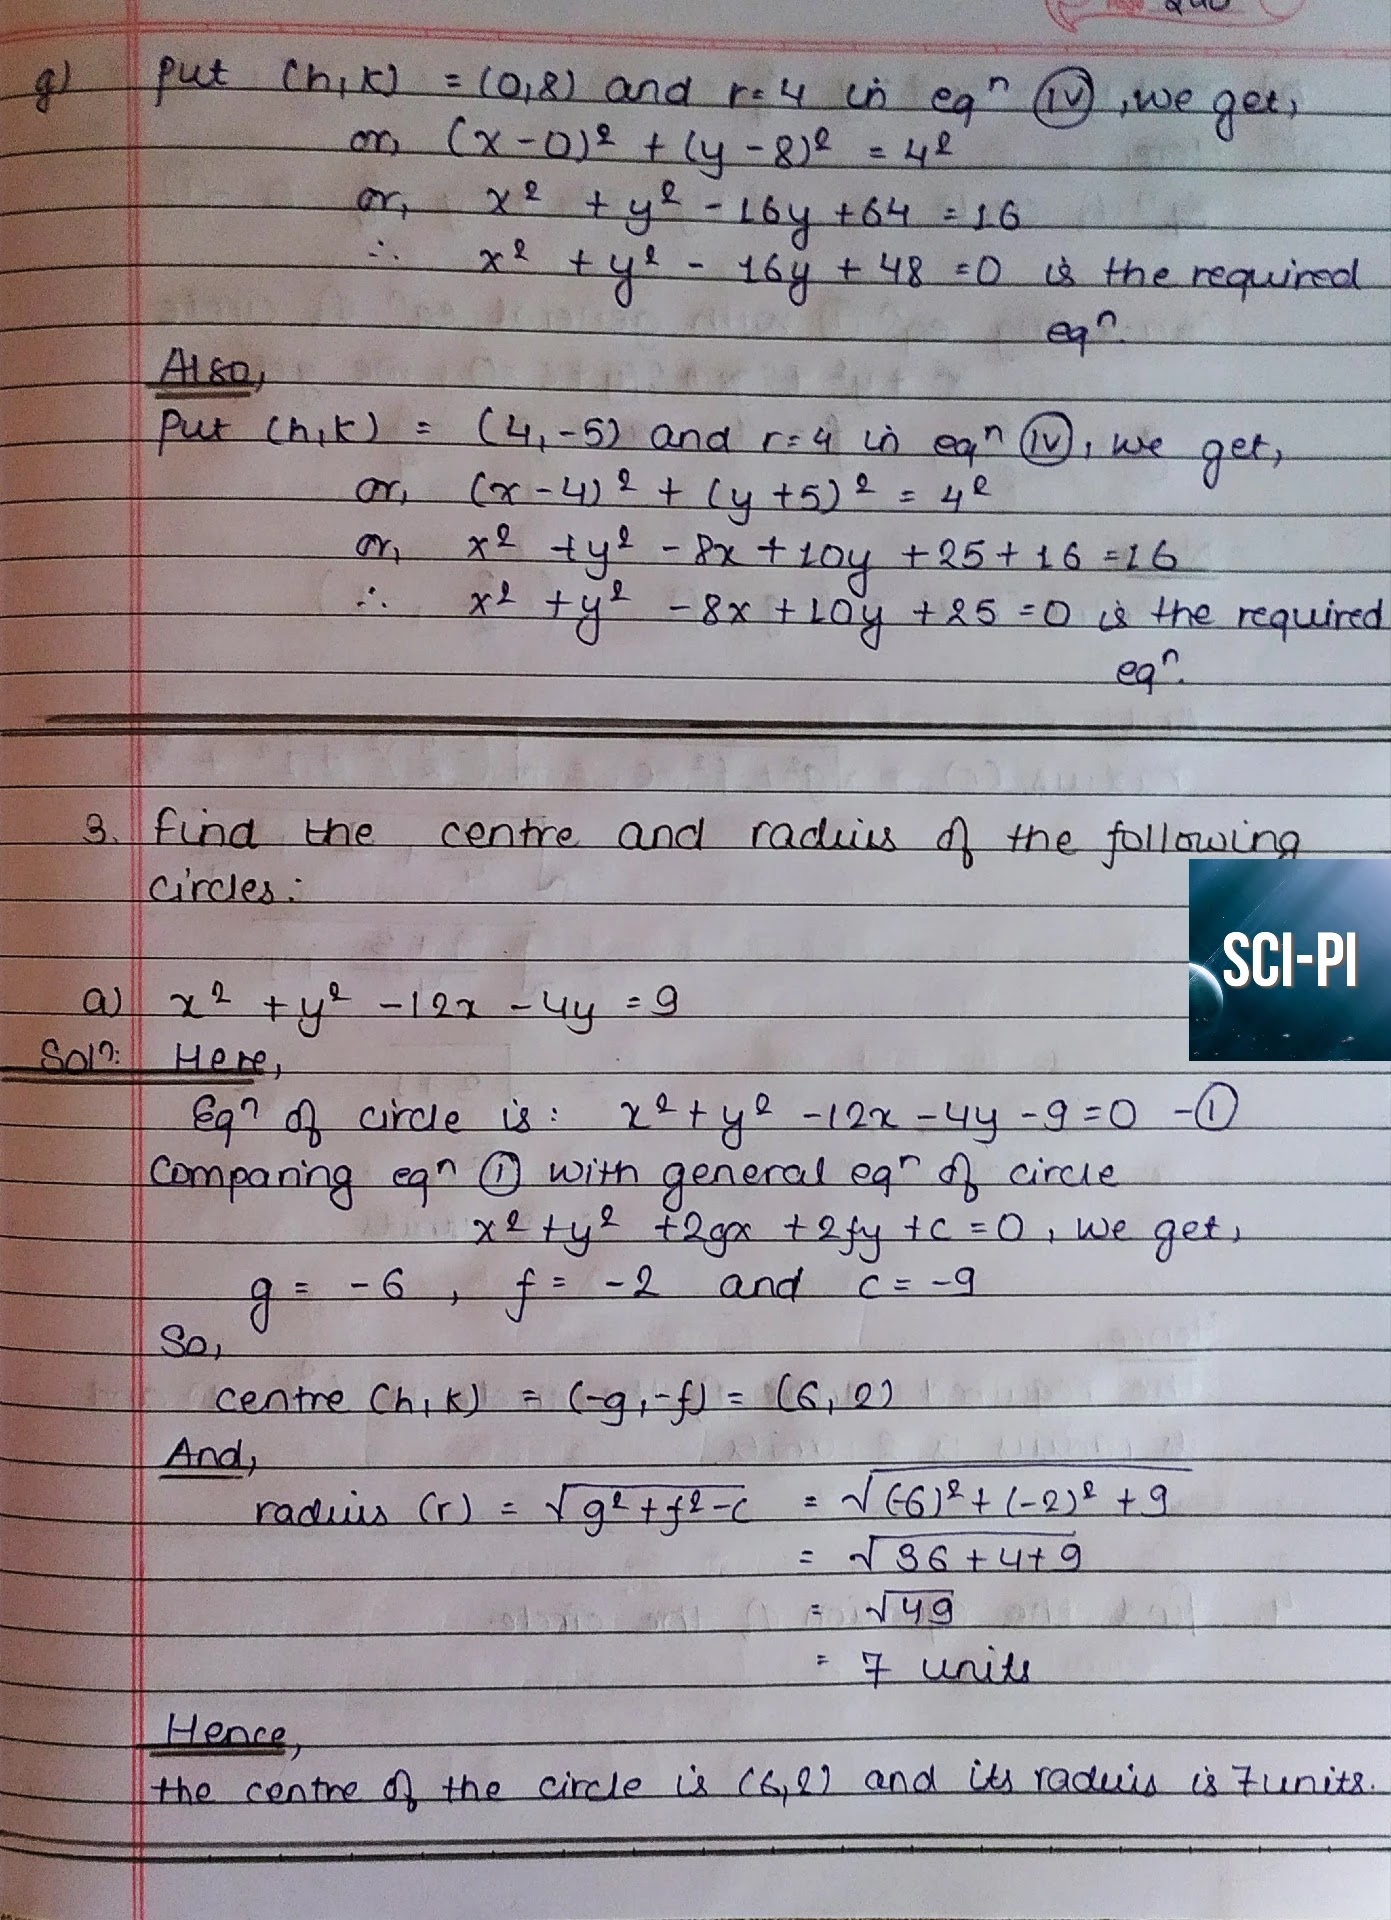 g) put (h,k) = (0,8) and r=4 in eqⁿ (iv), we get,
or, (x-0)² + (y-8)² = 4²
or, x² + y² - 16y + 64 = 16
∴ x² + y² - 16y + 48 = 0 is the required
eqⁿ.
Also,
Put (h,k) = (4,-5) and r=4 in eqⁿ (iv), we get,
or, (x-4)² + (y+5)² = 4²
or, x² + y² - 8x + 10y + 25 + 16 = 16
∴ x² + y² - 8x + 10y + 25 = 0 is the required
eqⁿ.
3. Find the centre and radius of the following
circles:
SCI-PI
a) x² + y² - 12x - 4y = 9
Solⁿ: Here,
Eqⁿ of circle is: x² + y² - 12x - 4y - 9 = 0 - (i)
Comparing eqⁿ (i) with general eqⁿ of circle
x² + y² + 2gx + 2fy + c = 0, we get,
g = -6, f = -2 and c = -9
So,
centre (h,k) = (-g,-f) = (6,2)
And,
radius (r) = √g² + f² - c = √(-6)² + (-2)² + 9
= √36 + 4 + 9
= √49
= 7 units
Hence,
the centre of the circle is (6,2) and its radius is 7 units.